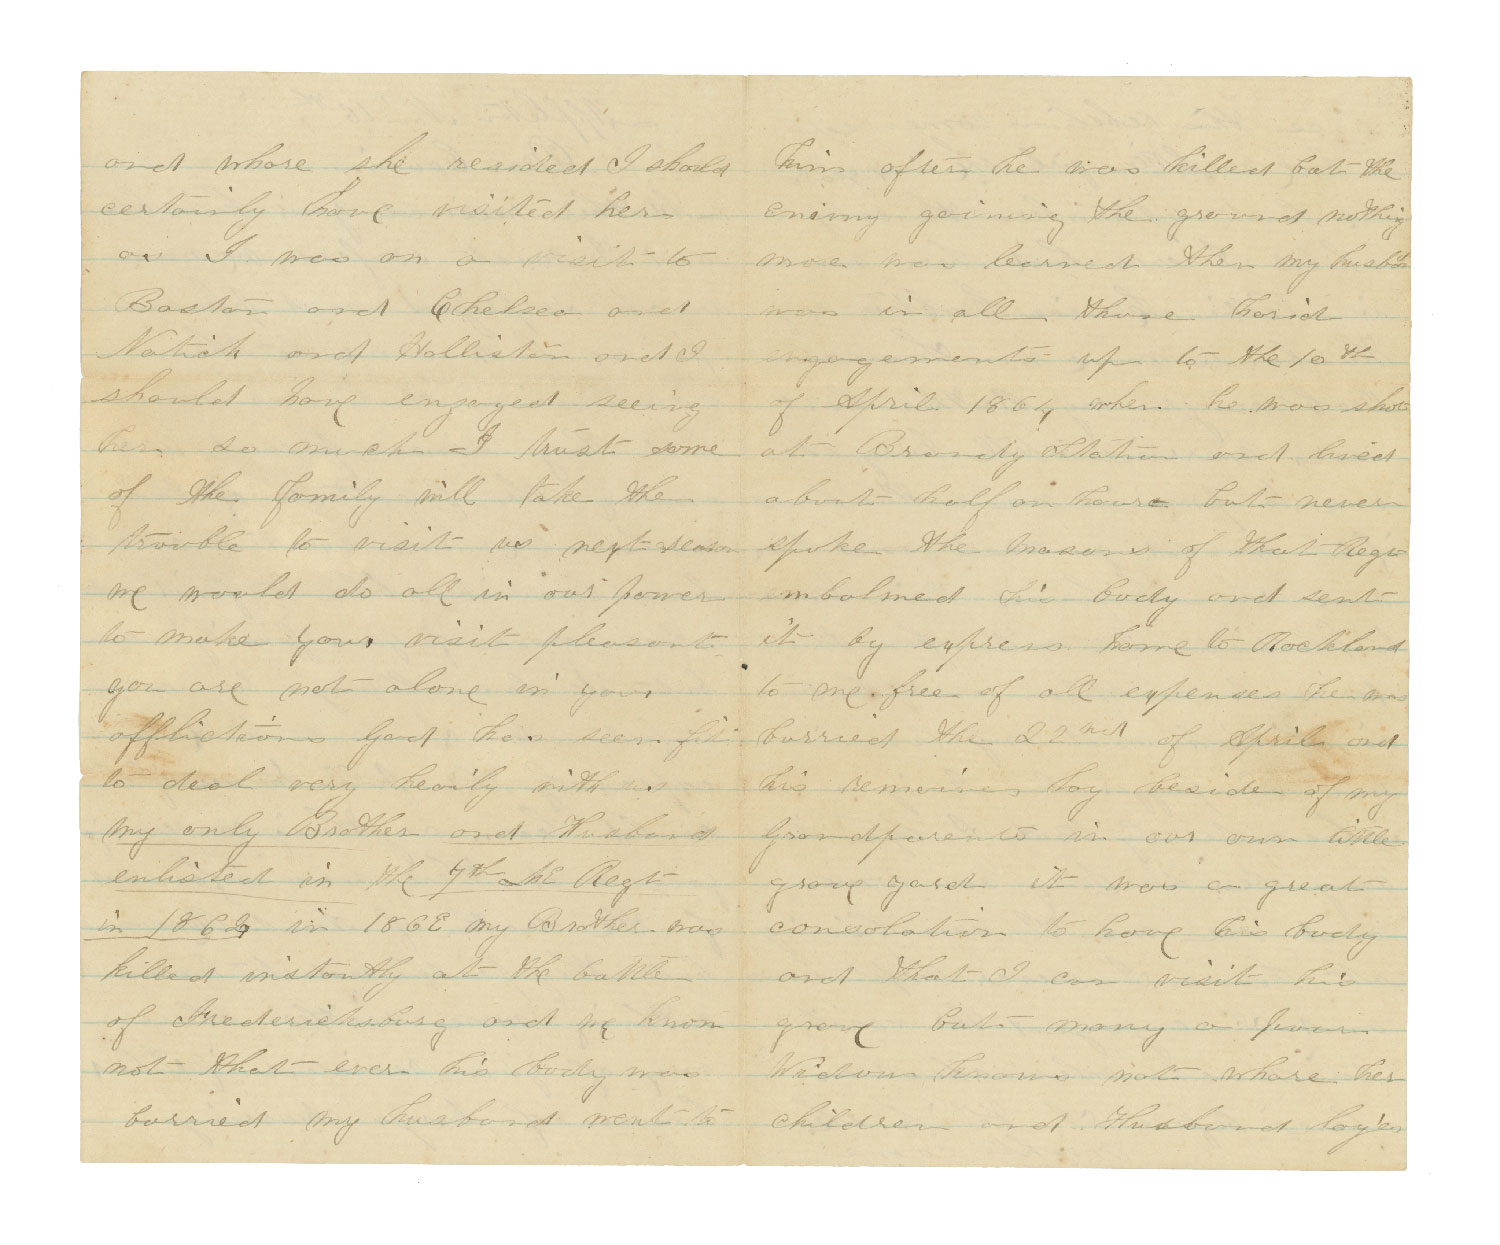 and whare she resided I should
certainly have visited her
as I was on a visit to
Boston and Chelsea and
Natick and Holliston and I
should have engoyed seeing
her so much I trust some
of the family will take the
trouble to visit us next season
we would do all in our power
to make your visit pleasant
you are not alone in your
afflictions God has seen fit
to deal very heavily with us
my only Brother and Husband
enlisted in the 7th Me Regt
in 1862 in 1862 my Brother was
killed instantly at the battle
of Fredericksburg and we know
not that ever his body was
burried my husband went to
him after he was killed but the
enimy gaining the ground nothing
more was learned then my husband
was in all those horid
engagements up to the 10th
of April 1864 when he was shot
at Brandy Station and lived
about half an hour but never
spoke the masons of that Regt
embalmed his body and sent
it by express home to Rockland
to me free of all expenses he was
burried the 22nd of April and
his remains lay beside of my
Grandparents in our own little
grave yard it was a great
consolation to have his body
and that I can visit his
grave but many a poor
Widow knows not whare her
children and Husband lay'es